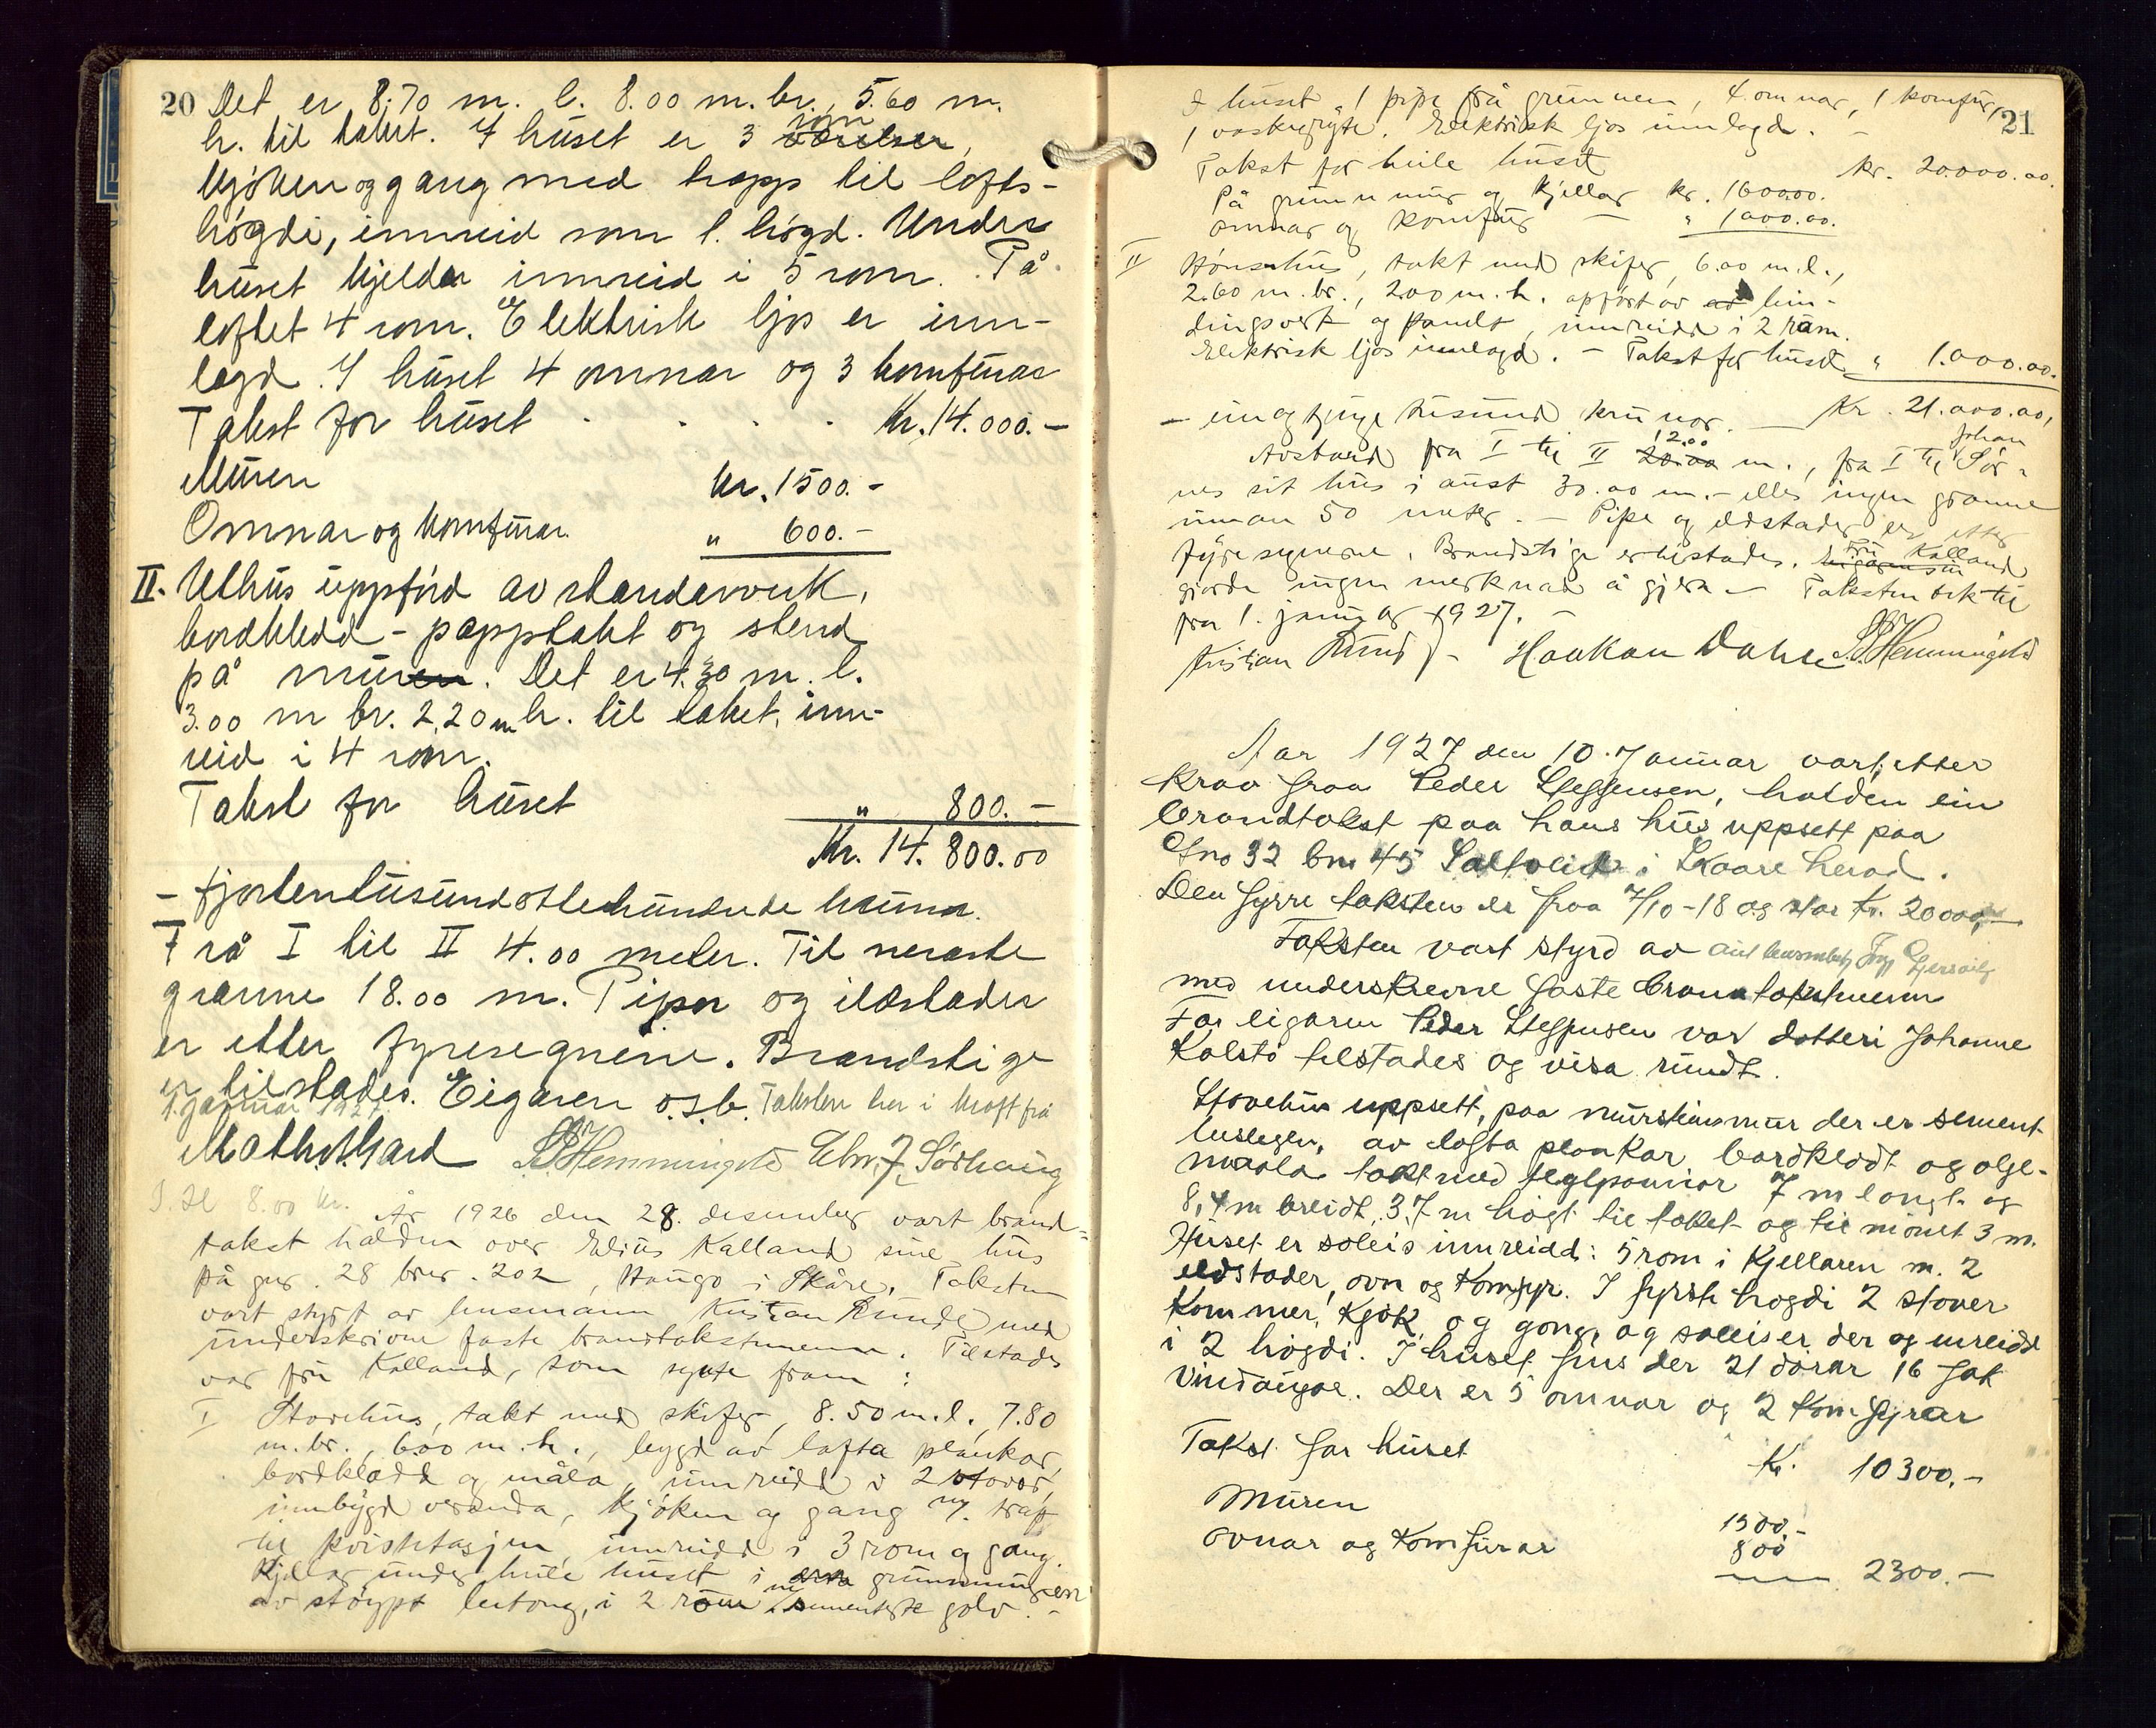 20 Det er 8.70 m. l. 8.00 m. br., 5.60 m.
h. til taket. I huset er 3 rom
kjöken og gang med trapp til lofts-
högdi, innreid som 1. högd. Under
huset kjeldar innreid i 5 rom. På
loftet 4 rom. Elektrisk ljos er inn-
lagd. I huset 4 omnar og 3 komfurar
Takst for huset . . . . Kr. 14.000.-
Muren kr. 1500.-
Omnar og komfurar. " 600.-
II. Uthus uppförd av standarverk,
bordkledd - papptekt og stend
på mur. Det er 4.30 m. l.
3.00 m br. 2,20 m h. til taket, inn-
reid i 4 rom.
Takst for huset " 800.-
Kr. 14.800.00
- fjortentusundottehundrede krunor.
Frå I til II 4.00 meter. Til neraste
granne 18.00 m. Pipor og ildstader
er etter fyresegnene. Brandstige
er tilstades. Eigaren o.s.b. Taksten her i kraft frå
1. januar 1927.
Hemmingstad Elm. J. Sörhaug
8.00 kr. År 1926 den 28. desember vart brand-
takst halden over Elius Kalland sine hus
på gnr. 28 bnr. 202, Haugo i Skåre. Taksten
vart styrt av lensmann Kristian Runde med
underskrivne faste brandtakstmenn. Tilstades
var fru Kalland, som synte fram :
I Stovehus, takt med skifer, 8.50 m. l., 7.80
m. br., 6.00 m. h., bygd av lafta plankar,
bordkledd og måla, innreidd i 2 stovor,
innbygd veranda, kjöken og gang m/ trap
til kvistetasjen innreidd i 3 rom og gang.
Kjellar under heile huset i grunnmuren
av stöypt betong, i 2 rom m/ sementert golv. -
I huset 1 pipe frå grunnen, 4 omnar, 1 komfur, 21
1 vaskegryte. Elektrisk ljos innlagd. -
Takst for heile huset kr. 20.000.00.
På grunnmur og kjellar kr. 1600.00.
omnar og komfur - " 1000.00.
II Hönsehus, takt med skifer, 6.00 m. l.,
2.60 m. br., 2.00 m. h. opfört av bin-
dingsverk og panelt, innreidd i 2 rom.
Elektrisk ljos innlagd. - Takst for huset " 1.000.00.
- ein og tjuge tusund krunor. - Kr. 21.000.00.
Avstand fra I til II 12.00 m., fra I til Johan Sör-
nes sit hus i aust 30.00 m. - elles ingen granne
innan 50 meter. - Pipe og eldstader er etter
fyresegnene. Brandstige er tilstades. Fru Kalland
gjorde ingen merknad å gjera. - Taksten tek til
fra 1. januar 1927. -
Kristian Runde - Haakon Dahle Hemmingstad
Aar 1927 den 10. Januar vart, etter
krav fraa Peder Steffensen, halden ein
brandtakst paa hans hus uppsett paa
Gno 32 bn 45 i Skaare herad.
Den fyrre taksten er fraa 7/10-18 og star kr. 20000,-
Taksten vart styrd av
med underskrevne faste brandtakstmenn
For eigaren Peder Steffensen var dotteri Johanne
Kolstö tilstades og visa rundt.
Stovehus uppsett, paa murstensmur der er sement
huslegen, av lafta plankar bordkledt og olje-
maala takt med teglpannor 7 m langt og
8,4 m breidt, 3,7 m högt til taket og til mönet 3 m.
Huset er soleis innreidd: 5 rom i Kjellaren m. 2
eldstader, ovn og komfyr. I fyrste högdi 2 stover
kammer, kjök og gong, og soleis er der og inreidd
i 2 högdi. I huset fins der 21 dörar 16 fak
vindaugar. Der er 5 omnar og 2 komfyrar
Takst for huset Kr. 10300.-
Muren 1500.-
ovnar og komfurar 800
2300.-